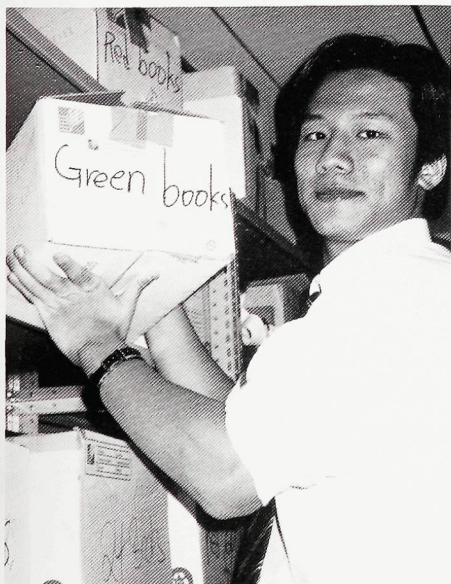 Red books
Green books